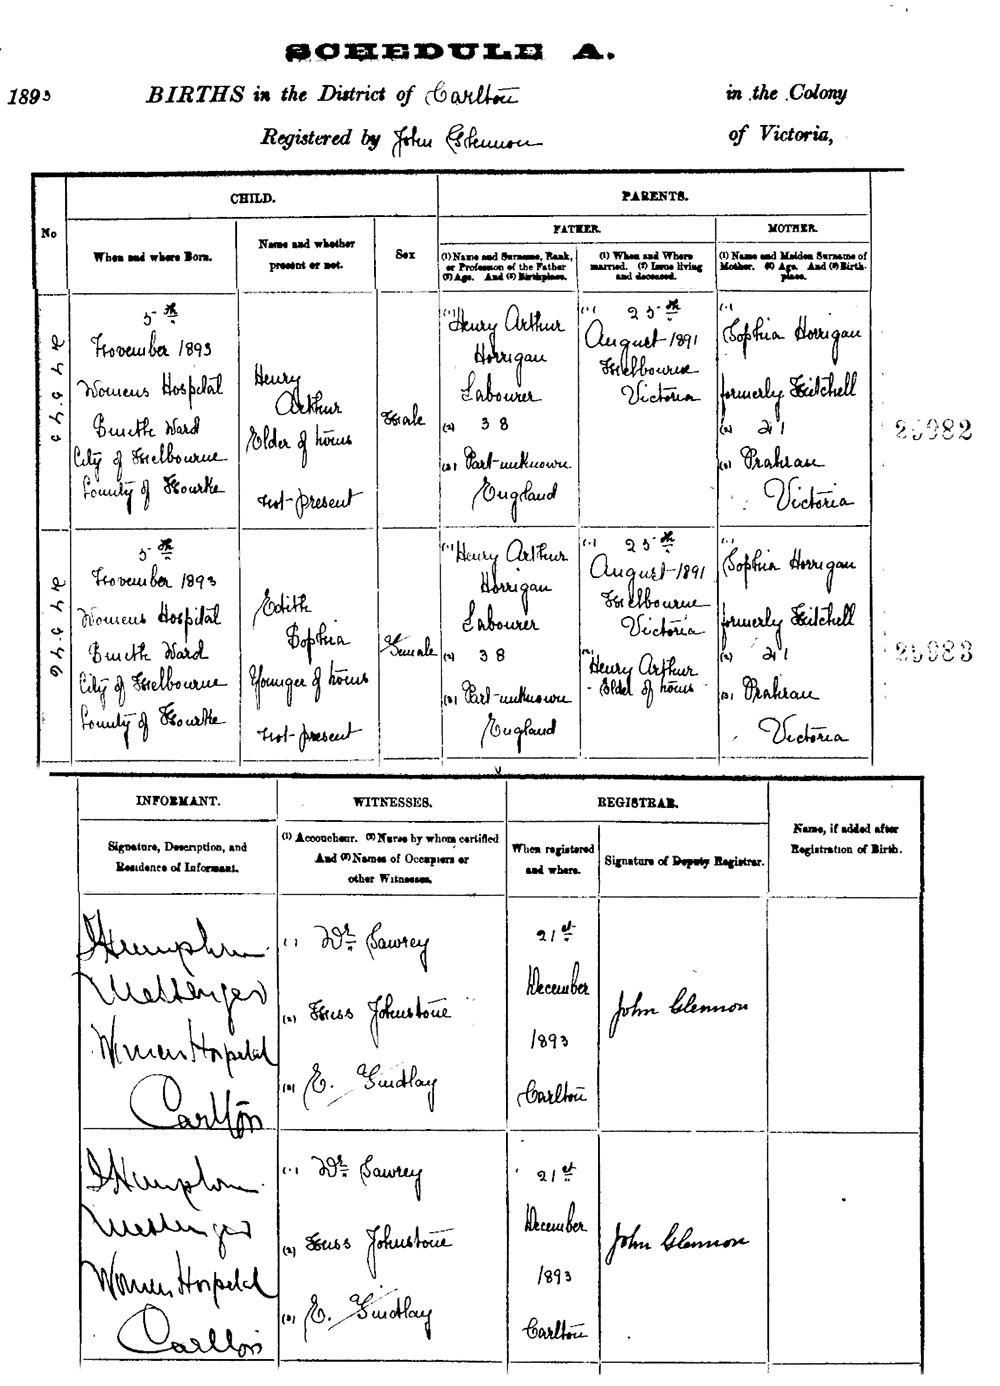 SCHEDULE A.
1893 BIRTHS in the District of Carlton in the Colony
Registered by John Glennon of Victoria,
CHILD. PARENTS.
No
FATHER. MOTHER.
When and where Born. Name and whether present or not. Sex
(1) Name and Surname, Rank, or Profession of the Father (2) Age. And (3) Birthplace.
(1) When and Where married. (2) Issue living and deceased.
(1) Name and Maiden Surname of Mother. (2) Age. And (3) Birthplace.
5th
November 1893
Womens Hospital
City of Melbourne
County of Bourke
Henry
Arthur
Elder of twins
Not present
Male
(1) Henry Arthur
Horrigan
Labourer
(2) 38
(3) Part unknown
England
(1) 25th
August 1891
Melbourne
Victoria
(1)
Sophia Horrigan
formerly Mitchell
(2) 21
(3) Prahran
Victoria
25982
5th
November 1893
Womens Hospital
City of Melbourne
County of Bourke
Edith
Sophia
Younger of twins
Not present
Female
(1) Henry Arthur
Horrigan
Labourer
(2) 38
(3) Part unknown
England
(1) 25th
August 1891
Melbourne
Victoria
(2)
Henry Arthur
Elder of twins
(1)
Sophia Horrigan
formerly Mitchell
(2) 21
(3) Prahran
Victoria
25983
INFORMANT. WITNESSES. REGISTRAR.
Name, if added after Registration of Birth.
Signature, Description, and Residence of Informant.
(1) Accoucheur. (2) Nurse by whom certified And (3) Names of Occupiers or other Witnesses.
When registered and where.
Signature of Deputy Registrar.
Messenger
Womens Hospital
Carlton
(1) Dr Lawrey
(2) Miss Johnstone
(3) E. Findlay
21st
December
1893
Carlton
John Glennon
Messenger
Women Hospital
Carlton
(1) Dr Lawrey
(2) Miss Johnstone
(3) E. Findlay
21st
December
1893
Carlton
John Glennon